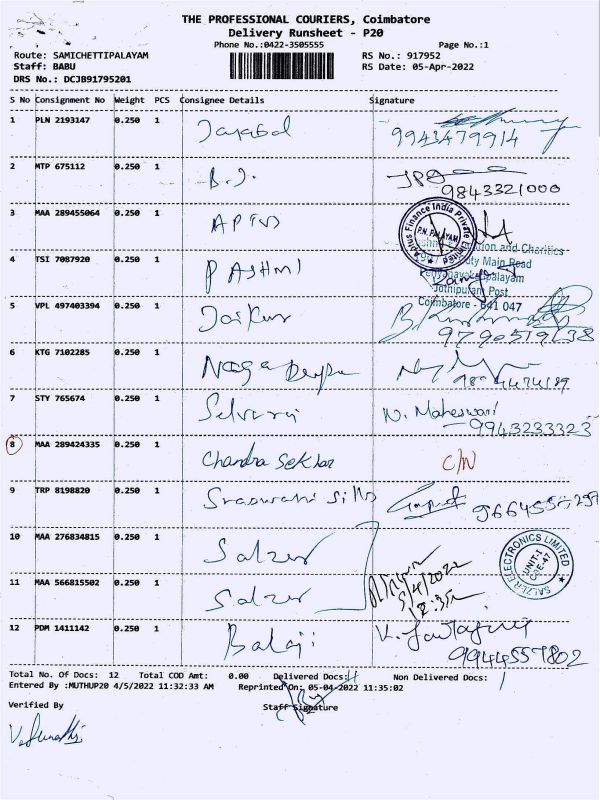 THE PROFESSIONAL COURIERS, Coimbatore
Delivery Runsheet - P20
Phone No.:0422-3505555 Page No.:1
Route: SAMICHETTIPALAYAM RS No.: 917952
Staff: BABU RS Date: 05-Apr-2022
DRS No.: DCJ891795201
S No Consignment No Weight PCS Consignee Details Signature
1 PLN 2193147 0.250 1
9943479914
2 MTP 675112 0.250 1 B.J.
9843321000
3 MAA 289455064 0.250 1
Aptus Finance India Private Limited
P.N. PALAYAM
and Charities
Main Road
4 TSI 7087920 0.250 1 PASHMI
Jothipuram Post
Coimbatore - 641 047
5 VPL 497403394 0.250 1 Jaikur
6 KTG 7102285 0.250 1 Naga
7 STY 765674 0.250 1 Selvaraj N. Maheswari
9943233323
8 MAA 289424335 0.250 1 Chandra Sekhar C/N
9 TRP 8198820 0.250 1
10 MAA 276834815 0.250 1 Salzer
SALZER ELECTRONICS LIMITED
UNIT-1
CBE-47
5/4/2022
11 MAA 566815502 0.250 1 Salzer
12:35
12 PDM 1411142 0.250 1 Balaji
9944557802
Total No. Of Docs: 12 Total COD Amt: 0.00 Delivered Docs: 11 Non Delivered Docs: 1
Entered By :MUTHUP20 4/5/2022 11:32:33 AM Reprinted On: 05-04-2022 11:35:02
Verified By Staff Signature